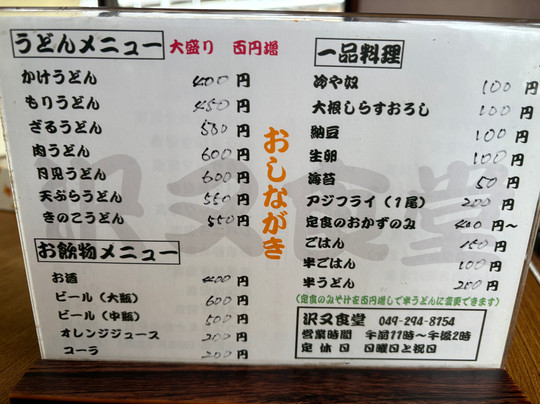 うどんメニュー 大盛り 百円増
かけうどん 400円
もりうどん 450円
ざるうどん 500円
肉うどん 600円
月見うどん 600円
天ぷらうどん 550円
きのこうどん 550円
お飲物メニュー
お酒 400円
ビール(大瓶) 600円
ビール(中瓶) 500円
オレンジジュース 200円
コーラ 200円
おしながき
沢又食堂
一品料理
冷や奴 100円
大根しらすおろし 100円
納豆 100円
生卵 100円
海苔 50円
アジフライ(1尾) 200円
定食のおかずのみ 400円~
ごはん 150円
半ごはん 100円
半うどん 200円
(定食のみそ汁を百円増しで半うどんに変更できます)
沢又食堂 049-294-8754
営業時間 午前11時~午後2時
定休日 日曜日と祝日